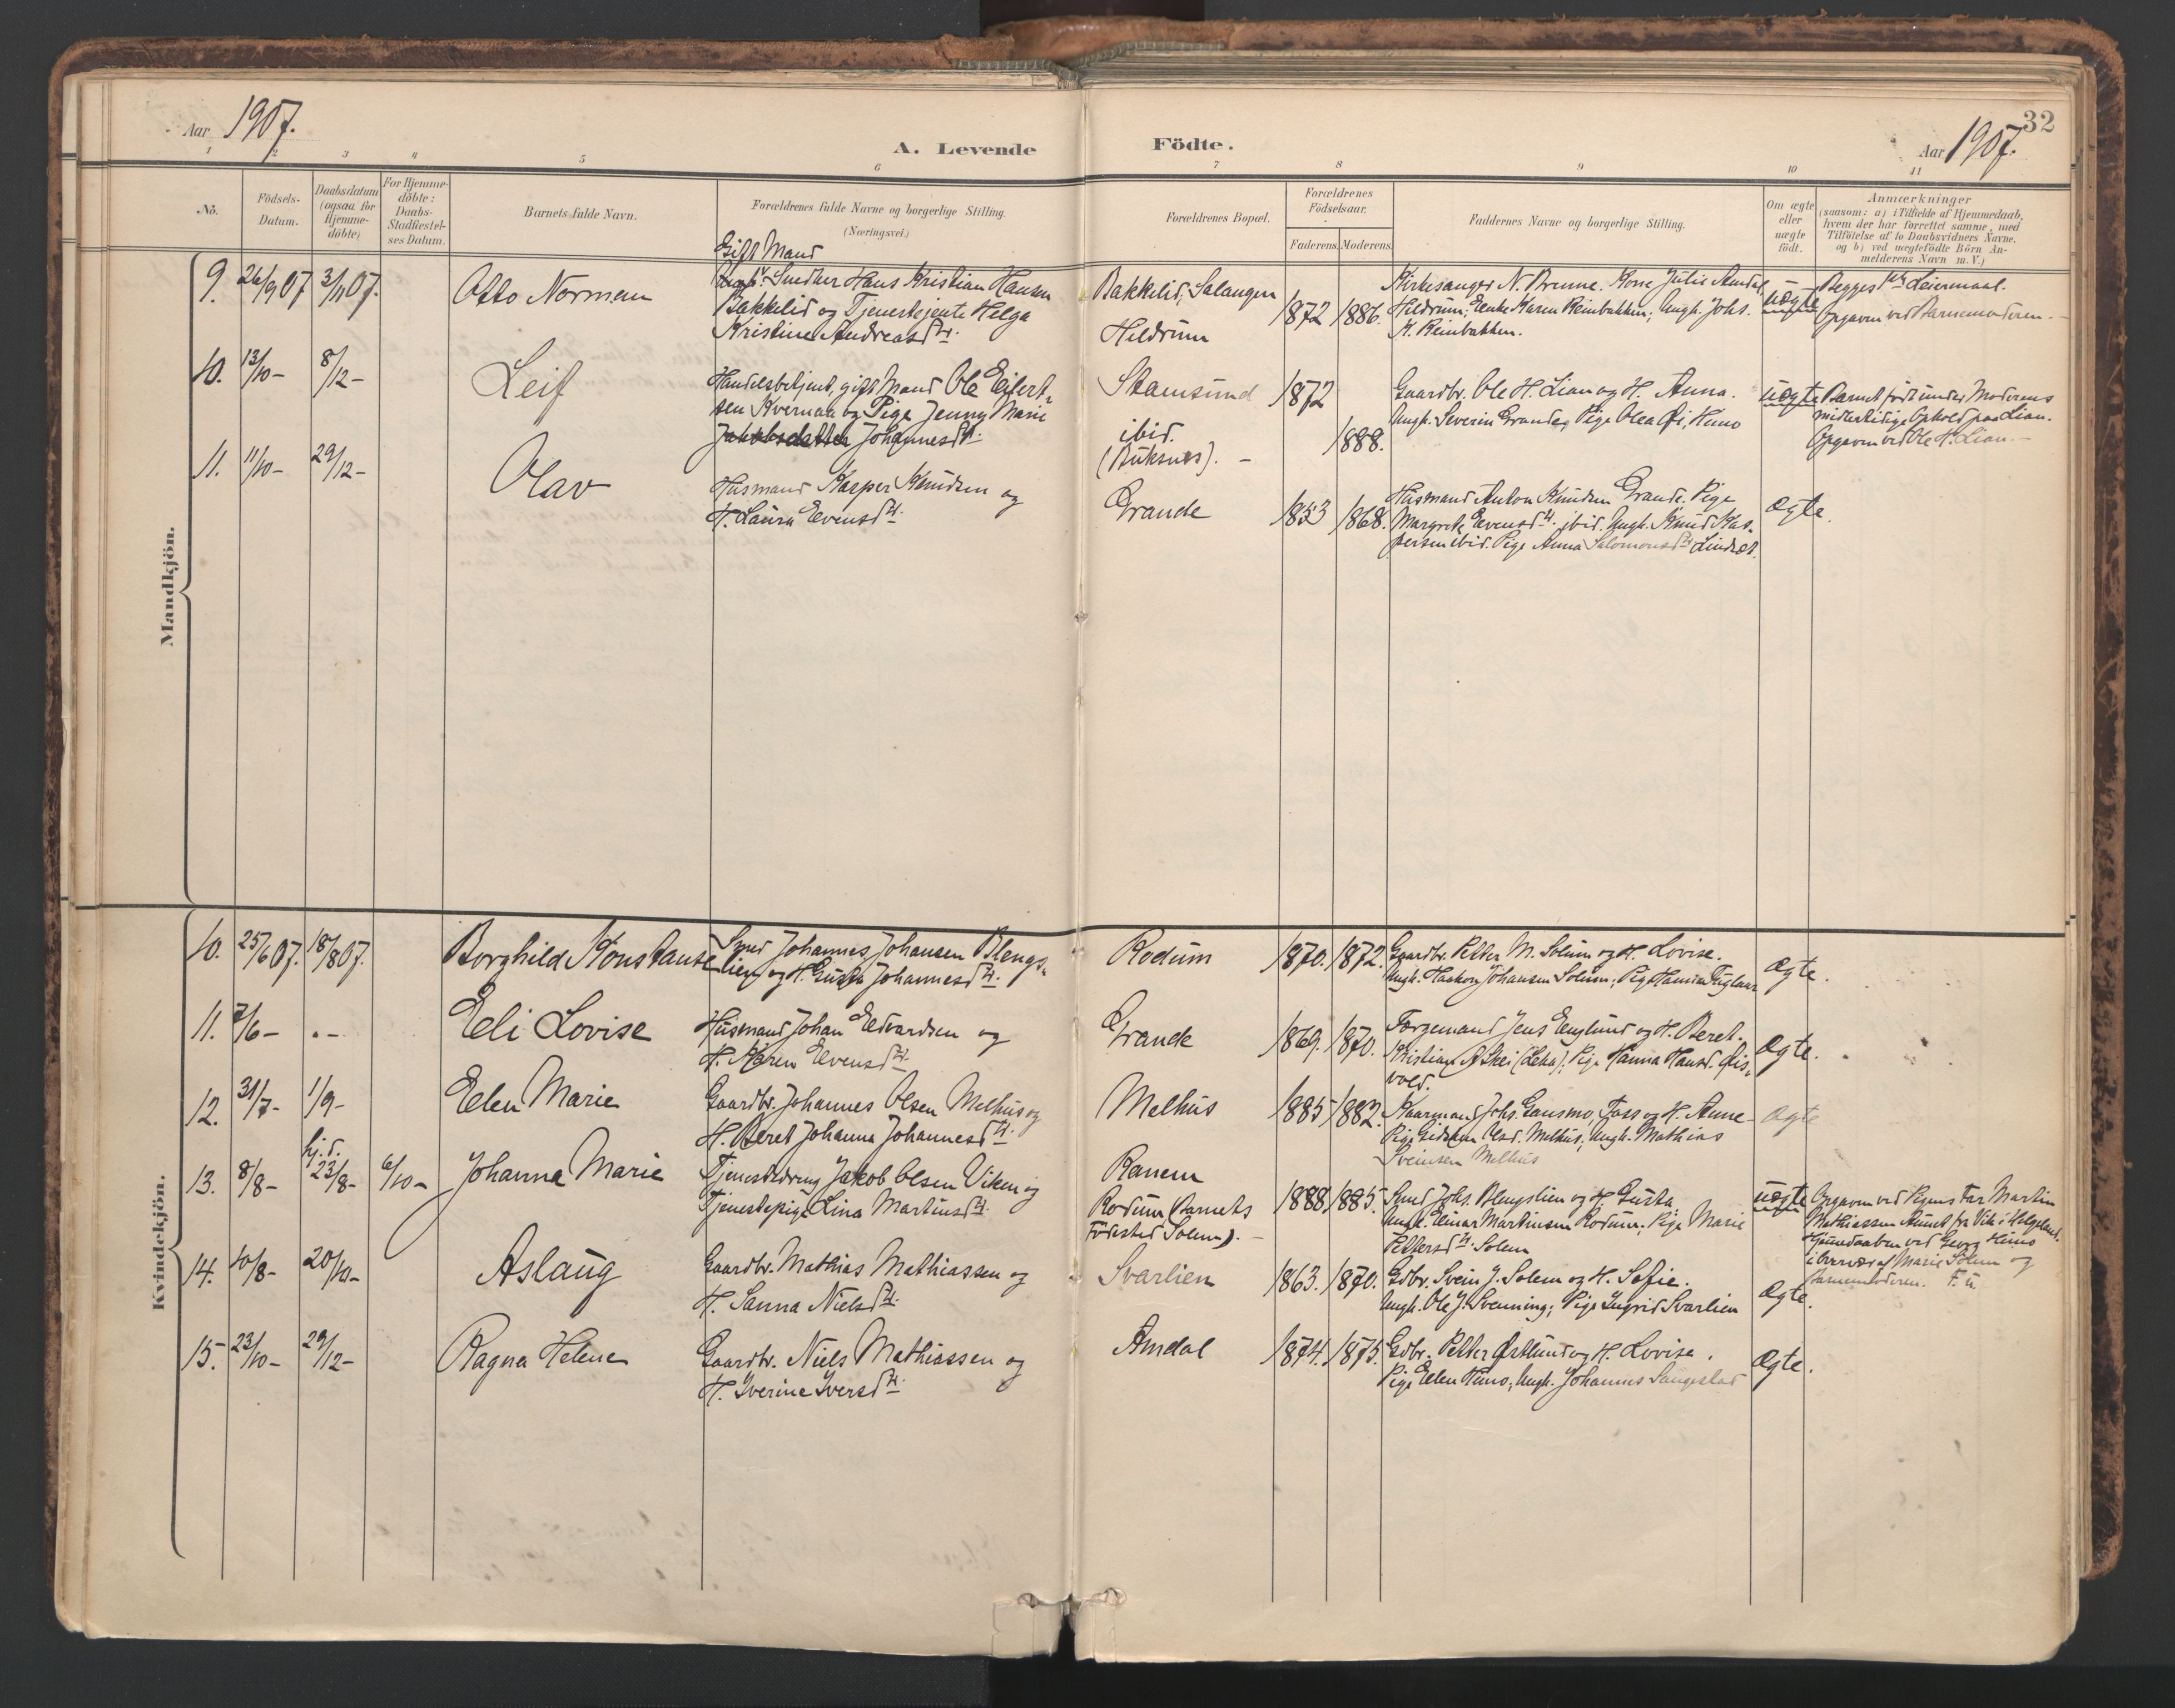 Aar 1907.
A. Levende
Födte.
32
Aar 1907.
1 2 3 4 5 6 7 8 9 10 11
No.
Födsels-
Datum.
Daabsdatum
(ogsaa for
Hjemme-
döbte)
For Hjemme-
döbte:
Daabs-
Stadfæstel-
ses Datum.
Barnets fulde Navn.
Forældrenes fulde Navne og borgerlige Stilling.
(Næringsvei.)
Forældrenes Bopæl.
Forældrenes
Födselsaar.
Faderens. Moderens.
Faddernes Navne og borgerlige Stilling.
Om ægte
eller
uægte
födt.
Anmærkninger
(saasom: a) i Tilfælde af Hjemmedaab,
hvem der har forrettet samme, med
Tilföielse af to Daabsvidners Navne.
og b) ved uægtefödte Börn An-
melderens Navn m. V.)
Mandkjön.
Gift Mand
9. 26/9 07 3/11 07. Otto Norman
Snedker Hans Kristian Hansen
Bakkelid og Tjenestejente Helga
Kristine Andreasdtr.
Bakkelid, Salangen
Hildrum
1872 1886.
Kirkesanger N. Brunne. Kone Julie Amdal,
Hildrum; Enke Karen Reinbakken; Ungk. Johs.
K. Reinbakken.
uægte
Begges 1ste Leiermaal.
Opgaven ved Barnemoderen.
10. 13/10 - 8/12 - Leif
Handelsbetjent, gift Mand Ole Eilert-
sen Kvernaa og Pige Jenny Marie
Jakobsdatter Johannesdtr.
Stamsund
ibid.
(Buksnes). -
1872
1888.
Gaardbr. Ole H. Lian og H. Anna.
Ungk. Severin Grande, Pige Olea Øi, Hemo
uægte
Barnet födt under Moderens
midlertidige Ophold paa Lian.
Opgaven ved Ole H. Lian. -
11. 11/10 - 29/12 - Olav
Husmand Kasper Knudsen og
H. Laura Evensdtr.
Grande
1853 1868.
Husmand Anton Knudsen Grande. Pige
Margrete Evensdtr. ibid. Ungk. Knud Kas-
persen ibid. Pige Anna Salomonsdtr. Lindset.
ægte.
Kvindekjön.
10. 25/6 07. 18/8 07. Borghild Konstanse
Smed Johannes Johansen Blengs-
lien og H. Gusta Johannesdtr.
Rodum
1870. 1872.
Gaardbr. Petter M. Solum og H. Lovise.
Ungk. Haakon Johansen Solum; Pige Hanna Fuglaar
ægte.
11. 7/6 - . - Eli Lovise
Husmand Johan Edvardsen og
H. Karen Evensdtr.
Grande
1869. 1870.
Færgemand Jens Englund og H. Beret.
Kristian A Skei (Leka); Pige Hanna Hansd. Eis-
vold.
ægte.
12. 31/7 - 1/9 - Ellen Marie
Gaardbr. Johannes Olsen Melhus og
H. Beret Johanna Johannesdtr.
Melhus
1885 1882.
Kaarmand Johs. Gansmo, Foss og H. Anne
Pige Olsd. Melhus; Ungk. Mathias
Sveinsen Melhus
ægte
13. 8/8 - hj. d. 23/8 - 6/10 - Johanna Marie
Tjenestedreng Jakob Olsen Viken og
Tjenestepige Lina Martinsdtr.
Ranem
Rodum (Barnets
Födested Solem). -
1888. 1885.
Smed Johs. Blengslien og H. Gusta;
Ungk. Einar Martinsen Rodum; Pige Marie
Pettersdtr. Solem
uægte
Opgaven ved Pigens Far Martin
Mathiassen Aunet fra Vik i Helgeland.
Hjemmedaaben ved Georg Hemo
i Overvær af Marie Solem og
Barnemoderen. F. u
14. 10/8 - 20/10 - Aslaug
Gaardbr. Mathias Mathiassen og
H. Sanna Nielsdtr.
Svarlien
1863. 1870.
Gdbr. Svein J. Solem og H. Sofie.
Ungk. Ole J. Svenning; Pige Ingrid Svarlien
ægte.
15. 23/10 - 29/12 - Ragna Helene
Gaardbr. Niels Mathiassen og
H. Iverine Iversdtr.
Amdal
1874. 1875.
Gdbr. Petter Østlund og H. Lovise.
Pige Ellen Hemo; Ungk. Johannes Saugestad
ægte.